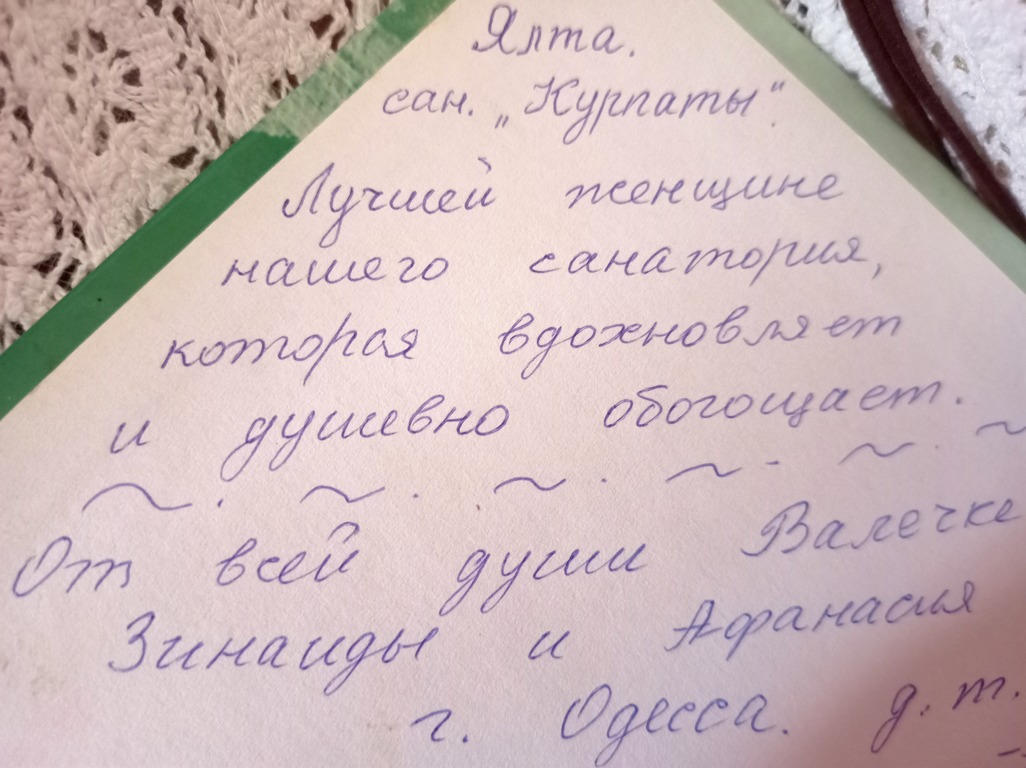 Ялта.
сан. „Курпаты".
Лучшей женщине
нашего санатория,
которая вдохновляет
и душевно обогощает.
От всей души Валечке
Зинаиды и Афанасия
г. Одесса. д. т.